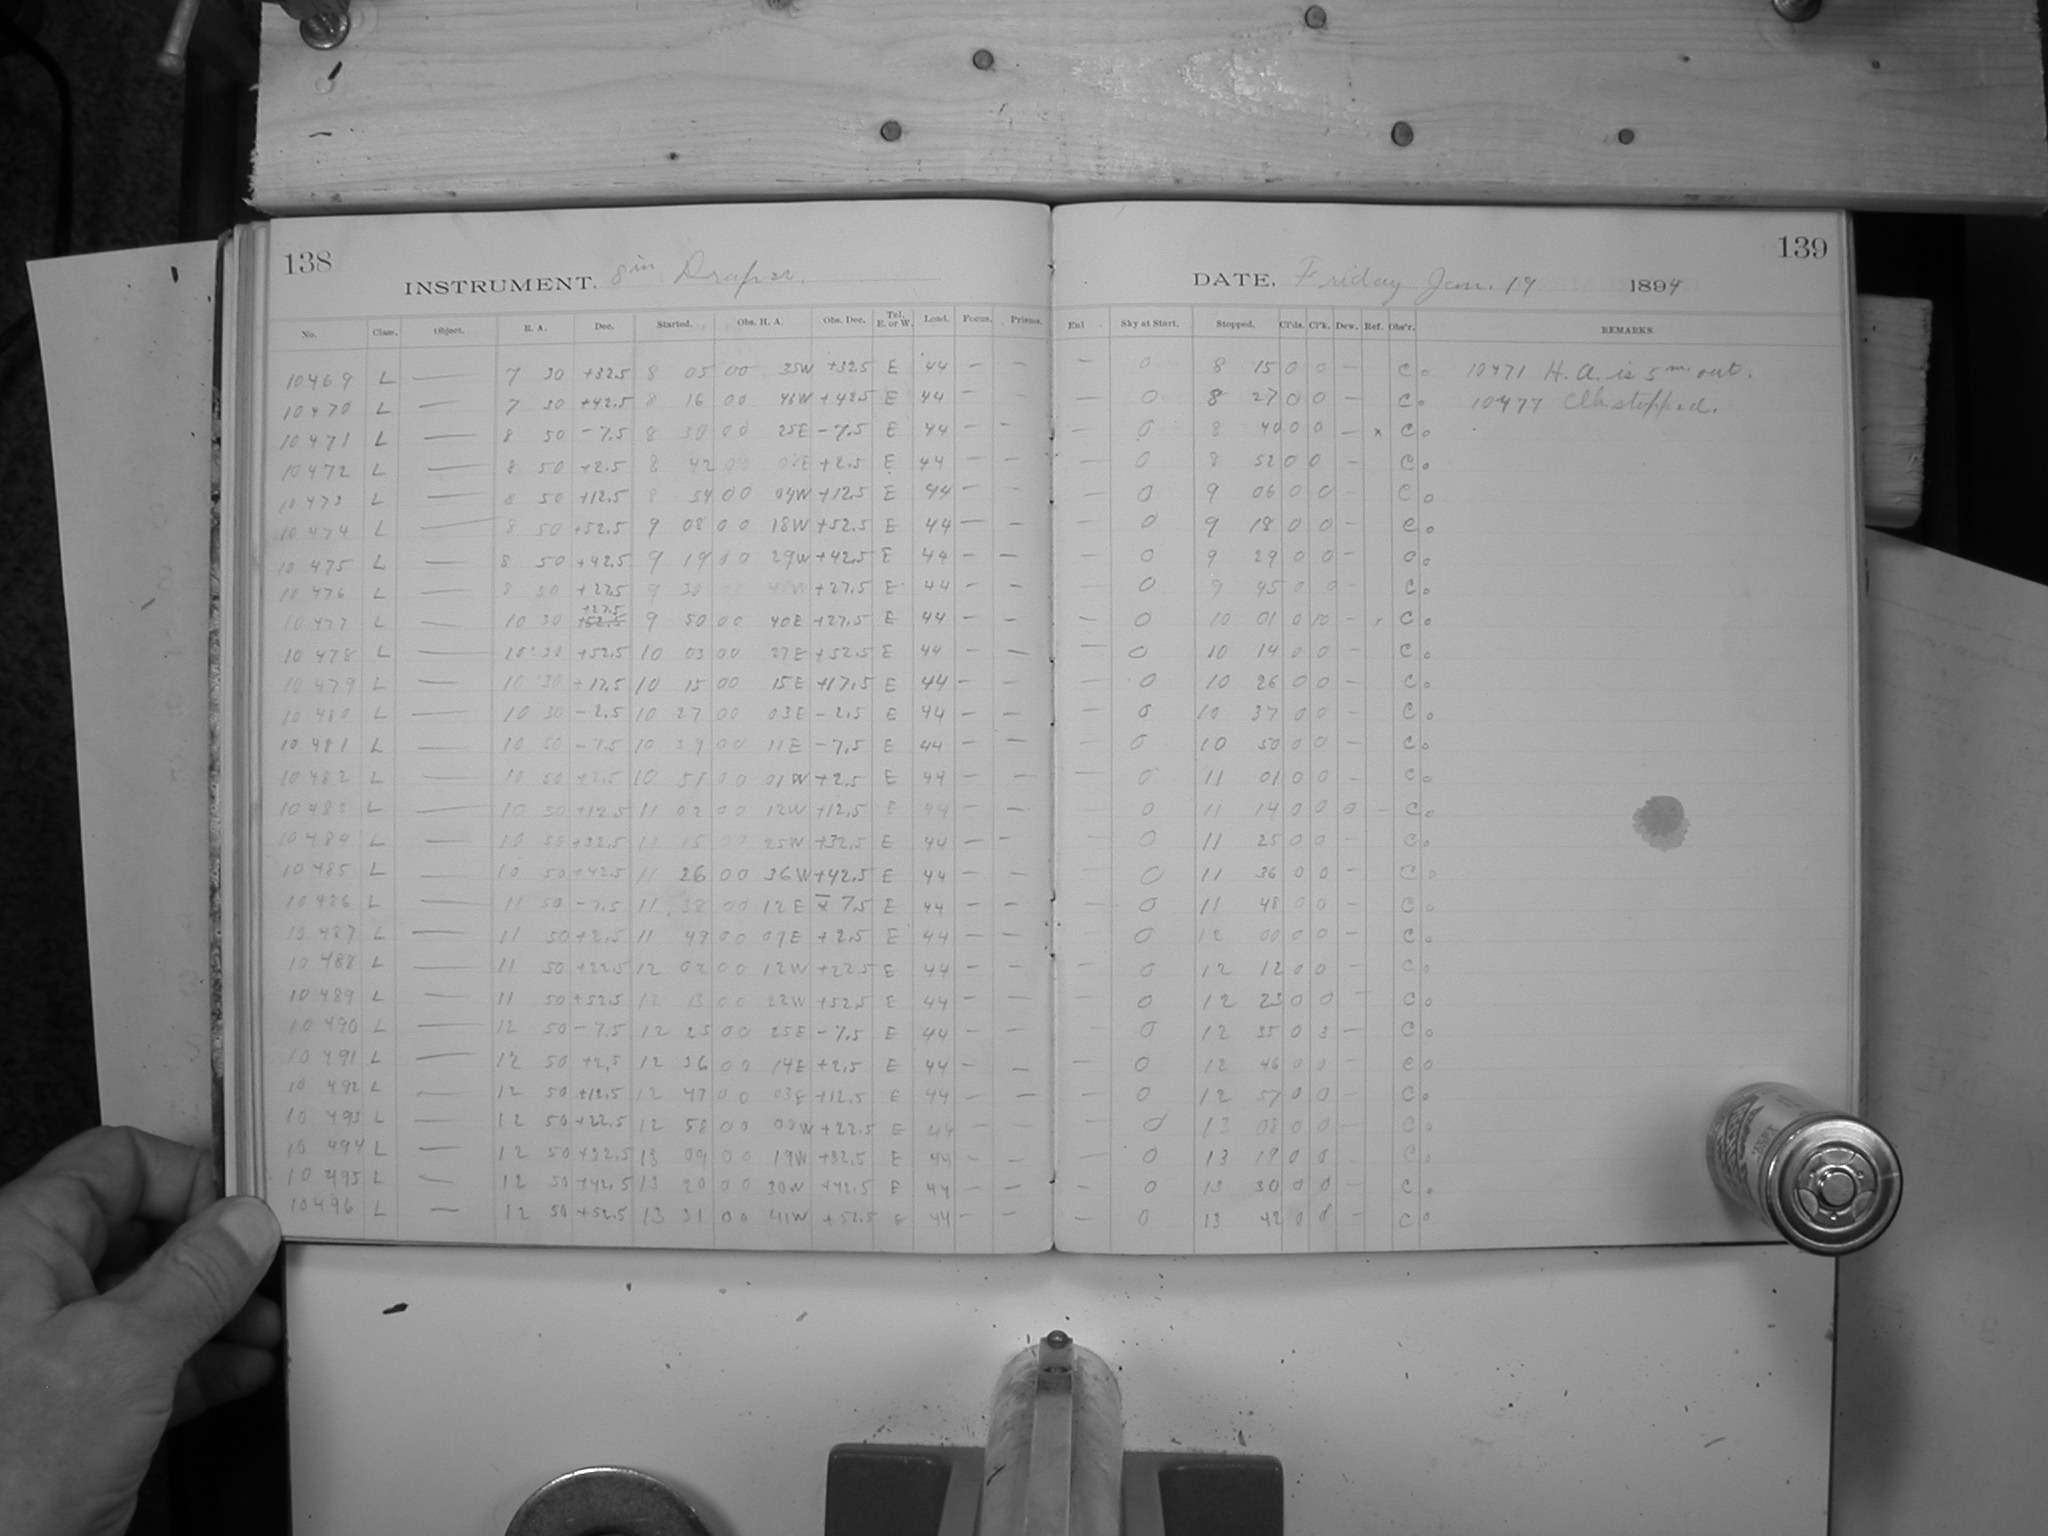 138
INSTRUMENT. 8in Draper.
No. Class. Object. R. A. Dec. Started. Obs. H. A. Obs. Dec. Tel. E. or W. Load. Focus. Prisms.
10469 L — 7 30 +32.5 8 05 00 35W +32.5 E 44 — —
10470 L — 7 30 +42.5 8 16 00 46W +42.5 E 44 — —
10471 L — 8 50 -7.5 8 30 00 25E -7.5 E 44 — —
10472 L — 8 50 +2.5 8 42 00 E +2.5 E 44 — —
10473 L — 8 50 +12.5 8 54 00 04W +12.5 E 44 — —
10474 L — 8 50 +52.5 9 08 00 18W +52.5 E 44 — —
10475 L — 8 50 +42.5 9 19 00 29W +42.5 E 44 — —
10476 L — 8 50 +27.5 9 30 00 40W +27.5 E 44 — —
10477 L — 10 30 +27.5 9 50 00 40E +27.5 E 44 — —
10478 L — 10 30 +52.5 10 03 00 27E +52.5 E 44 — —
10479 L — 10 30 +17.5 10 15 00 15E +17.5 E 44 — —
10480 L — 10 30 -2.5 10 27 00 03E -2.5 E 44 — —
10481 L — 10 50 -7.5 10 39 00 11E -7.5 E 44 — —
10482 L — 10 50 +2.5 10 51 00 01W +2.5 E 44 — —
10483 L — 10 50 +12.5 11 02 00 12W +12.5 E 44 — —
10484 L — 10 50 +32.5 11 15 00 25W +32.5 E 44 — —
10485 L — 10 50 +42.5 11 26 00 36W +42.5 E 44 — —
10486 L — 11 50 -7.5 11 38 00 12E - 7.5 E 44 — —
10487 L — 11 50 +2.5 11 49 00 01E +2.5 E 44 — —
10488 L — 11 50 +22.5 12 02 00 12W +22.5 E 44 — —
10489 L — 11 50 +52.5 12 13 00 22W +52.5 E 44 — —
10490 L — 12 50 -7.5 12 25 00 25E -7.5 E 44 — —
10491 L — 12 50 +2.5 12 36 00 14E +2.5 E 44 — —
10492 L — 12 50 +12.5 12 47 00 03E +12.5 E 44 — —
10493 L — 12 50 +22.5 12 58 00 08W +22.5 E 44 — —
10494 L — 12 50 +32.5 13 09 00 19W +32.5 E 44 — —
10495 L — 12 50 +42.5 13 20 00 30W +42.5 E 44 — —
10496 L — 12 50 +52.5 13 31 00 41W +52.5 E 44 — —
139
DATE, Friday Jan. 19 1894
Enl Sky at Start. Stopped. Cl'ds. Cl'k. Dew. Ref. Obs'r. REMARKS.
— 0 8 15 0 0 — C. 10471 H. A. is 5m. out.
— 0 8 27 0 0 — C. 10477 Clk. stopped.
— 0 8 40 0 0 — x C.
— 0 8 52 0 0 — C.
— 0 9 06 0 0 — C.
— 0 9 18 0 0 — C.
— 0 9 29 0 0 — C.
— 0 9 45 0 0 C.
— 0 10 01 0 10 — x C.
— 0 10 14 0 0 — C.
— 0 10 26 0 0 — C.
— 0 10 37 0 0 — C.
— 0 10 50 0 0 — C.
— 0 11 01 0 0 — C.
— 0 11 14 0 0 0 — C.
— 0 11 25 0 0 — C.
— 0 11 36 0 0 — C.
— 0 11 48 0 0 — C.
— 0 12 00 0 0 — C.
— 0 12 12 0 0 — C.
— 0 12 23 0 0 — C.
— 0 12 35 0 3 — C.
— 0 12 46 0 0 — C.
— 0 12 57 0 0 — C.
— 0 13 08 0 0 — C.
— 0 13 19 0 0 — C.
— 0 13 30 0 0 — C.
— 0 13 42 0 0 — C.